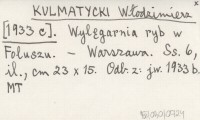 KULMATYCKI Włodzimierz
[1933 c]. Wylęgarnia ryb w
Foluszu. – Warszawa. Ss. 6,
il., cm 23 x 15. Odb. z: jw. 1933 b.
MT